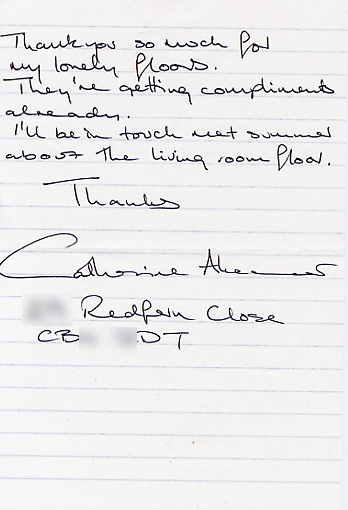 Thankyou so much for
my lonely floors.
They're getting compliments
already.
I'll be in touch next summer
about the living room floor.
Thanks
Catherine
Redfern Close
CB DT